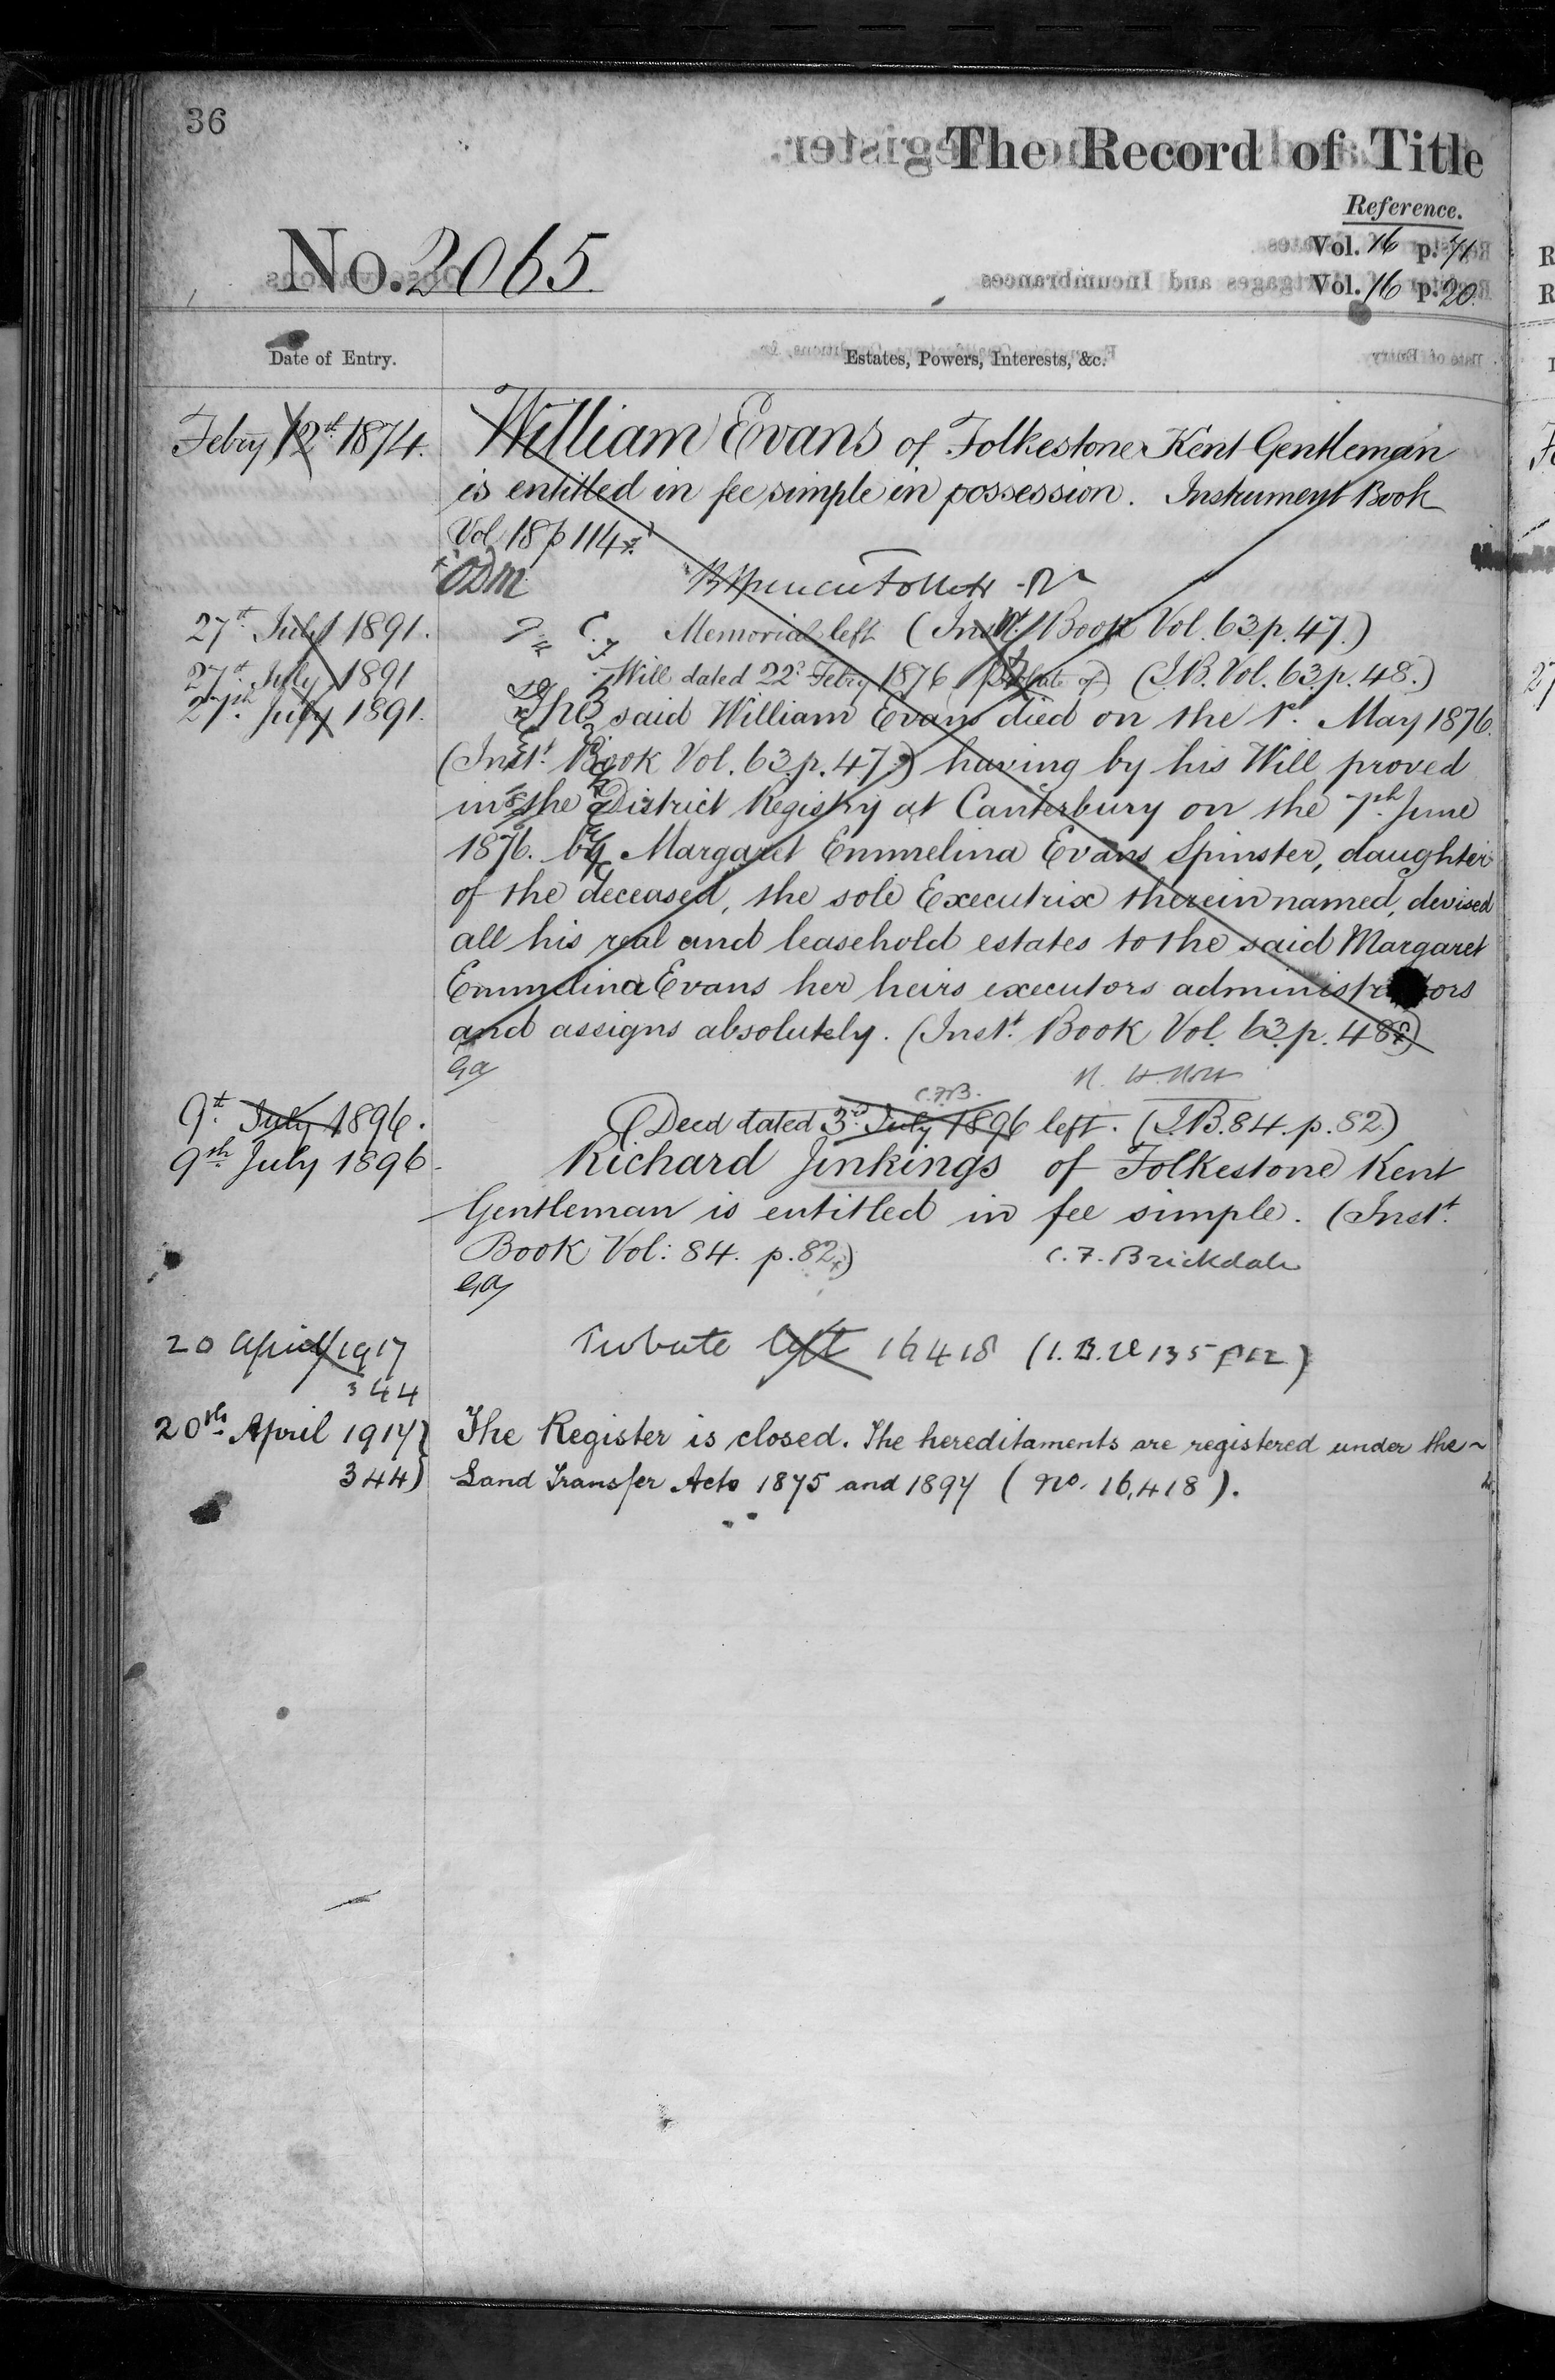 36
The Record of Title
Reference.
No. 2065
Vol. 16 p. 71
Vol. 16 p. 20.
Date of Entry.
Estates, Powers, Interests, &c.
Febry 12th 1874. William Evans of Folkestone Kent Gentleman
is entitled in fee simple in possession. Instrument Book
Vol 18 p 114
ODM
27th July 1891. Memorial left (Inst. Book Vol. 63. p. 47.)
27th July 1891 Will dated 22d Febry 1876 (Probate of) (I.B. Vol. 63. p. 48.)
27th July 1891. The said William Evans died on the 1st May 1876.
(Inst. Book Vol. 63. p. 47.) having by his Will proved
in the District Registry at Canterbury on the 7th June
1876. by Margaret Emmelina Evans Spinster, daughter
of the deceased, the sole Executrix therein named, devised
all his real and leasehold estates to the said Margaret
Emmelina Evans her heirs executors administrators
and assigns absolutely. (Inst. Book Vol. 63. p. 48.)
C.F.B.
9th July 1896. Deed dated 3rd July 1896 left. (I.B. 84. p. 82.)
9th July 1896. Richard Jinkings of Folkestone Kent
Gentleman is entitled in fee simple. (Inst.
Book Vol: 84. p. 82.) C. F. Brickdale
20 April 1917 left 16418 (I.B. Vl 135 p 12)
344
20th April 1917} The Register is closed. The hereditaments are registered under the
344) Land Transfer Acts 1875 and 1897 (No. 16,418).